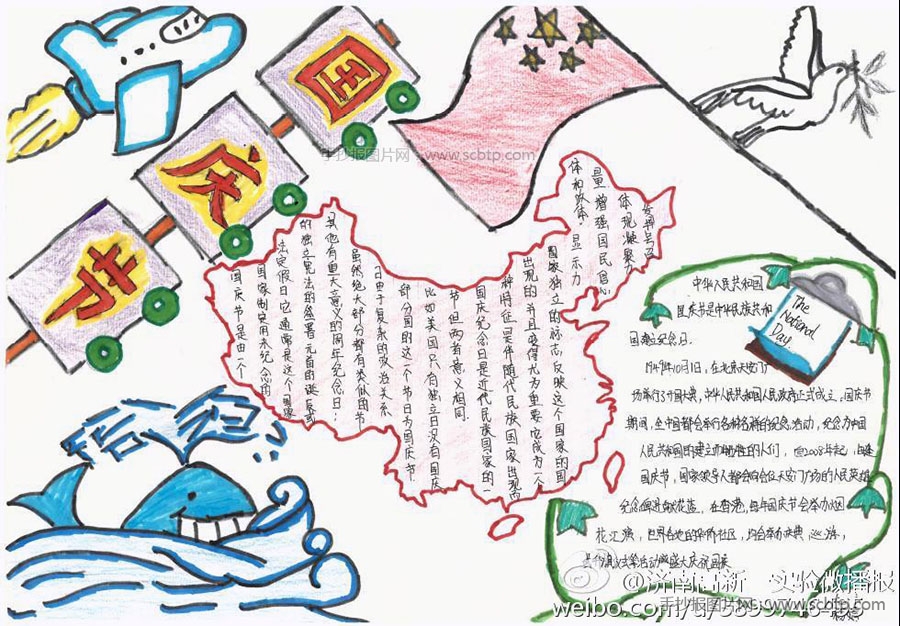 国
庆
节
国庆节是由一个
国家制定用来纪念的
法定假日它通常是这个国家
的独立宪法的签署元首的诞辰或
其他有重大意义的周年纪念日.
虽然绝大部分都有类似的节
日由于复杂的政治关系
部分国的这一个节日为国庆节
比如美国只有独立日没有国庆
节但两者意义相同
国庆纪念日是近代民族国家的一
种特征是伴随代民族国家出现而
出现的并且变得尤为重要它成为一个
国家独立的标志反映这个国家的国
体和政体.显示力
量增强国民信心
体现凝聚力
发挥号召
The
National
Day
中华人民共和国
国庆节是中华民族共和
国建立纪念日.
1949年10月1日,在北京天安门广
场举行了开国大典,中华人民共和国人民政府正式成立,国庆节
期间,全中国都会举行各种各样的纪念活动,纪念为中国
人民共和国的建立而牺牲的人们,自2008年起,
国庆节,国家领导人都会向天安门广场的人民英雄
纪念碑敬献花篮,在香港,每年国庆节会举办
花汇演,世界各地的华侨社区,均会举办庆典,巡游,
活动
手抄报图片网 www.scbtp.com
@济南高新 实验微播报
weibo.com/u/
手抄报图片网 www.scbtp.com